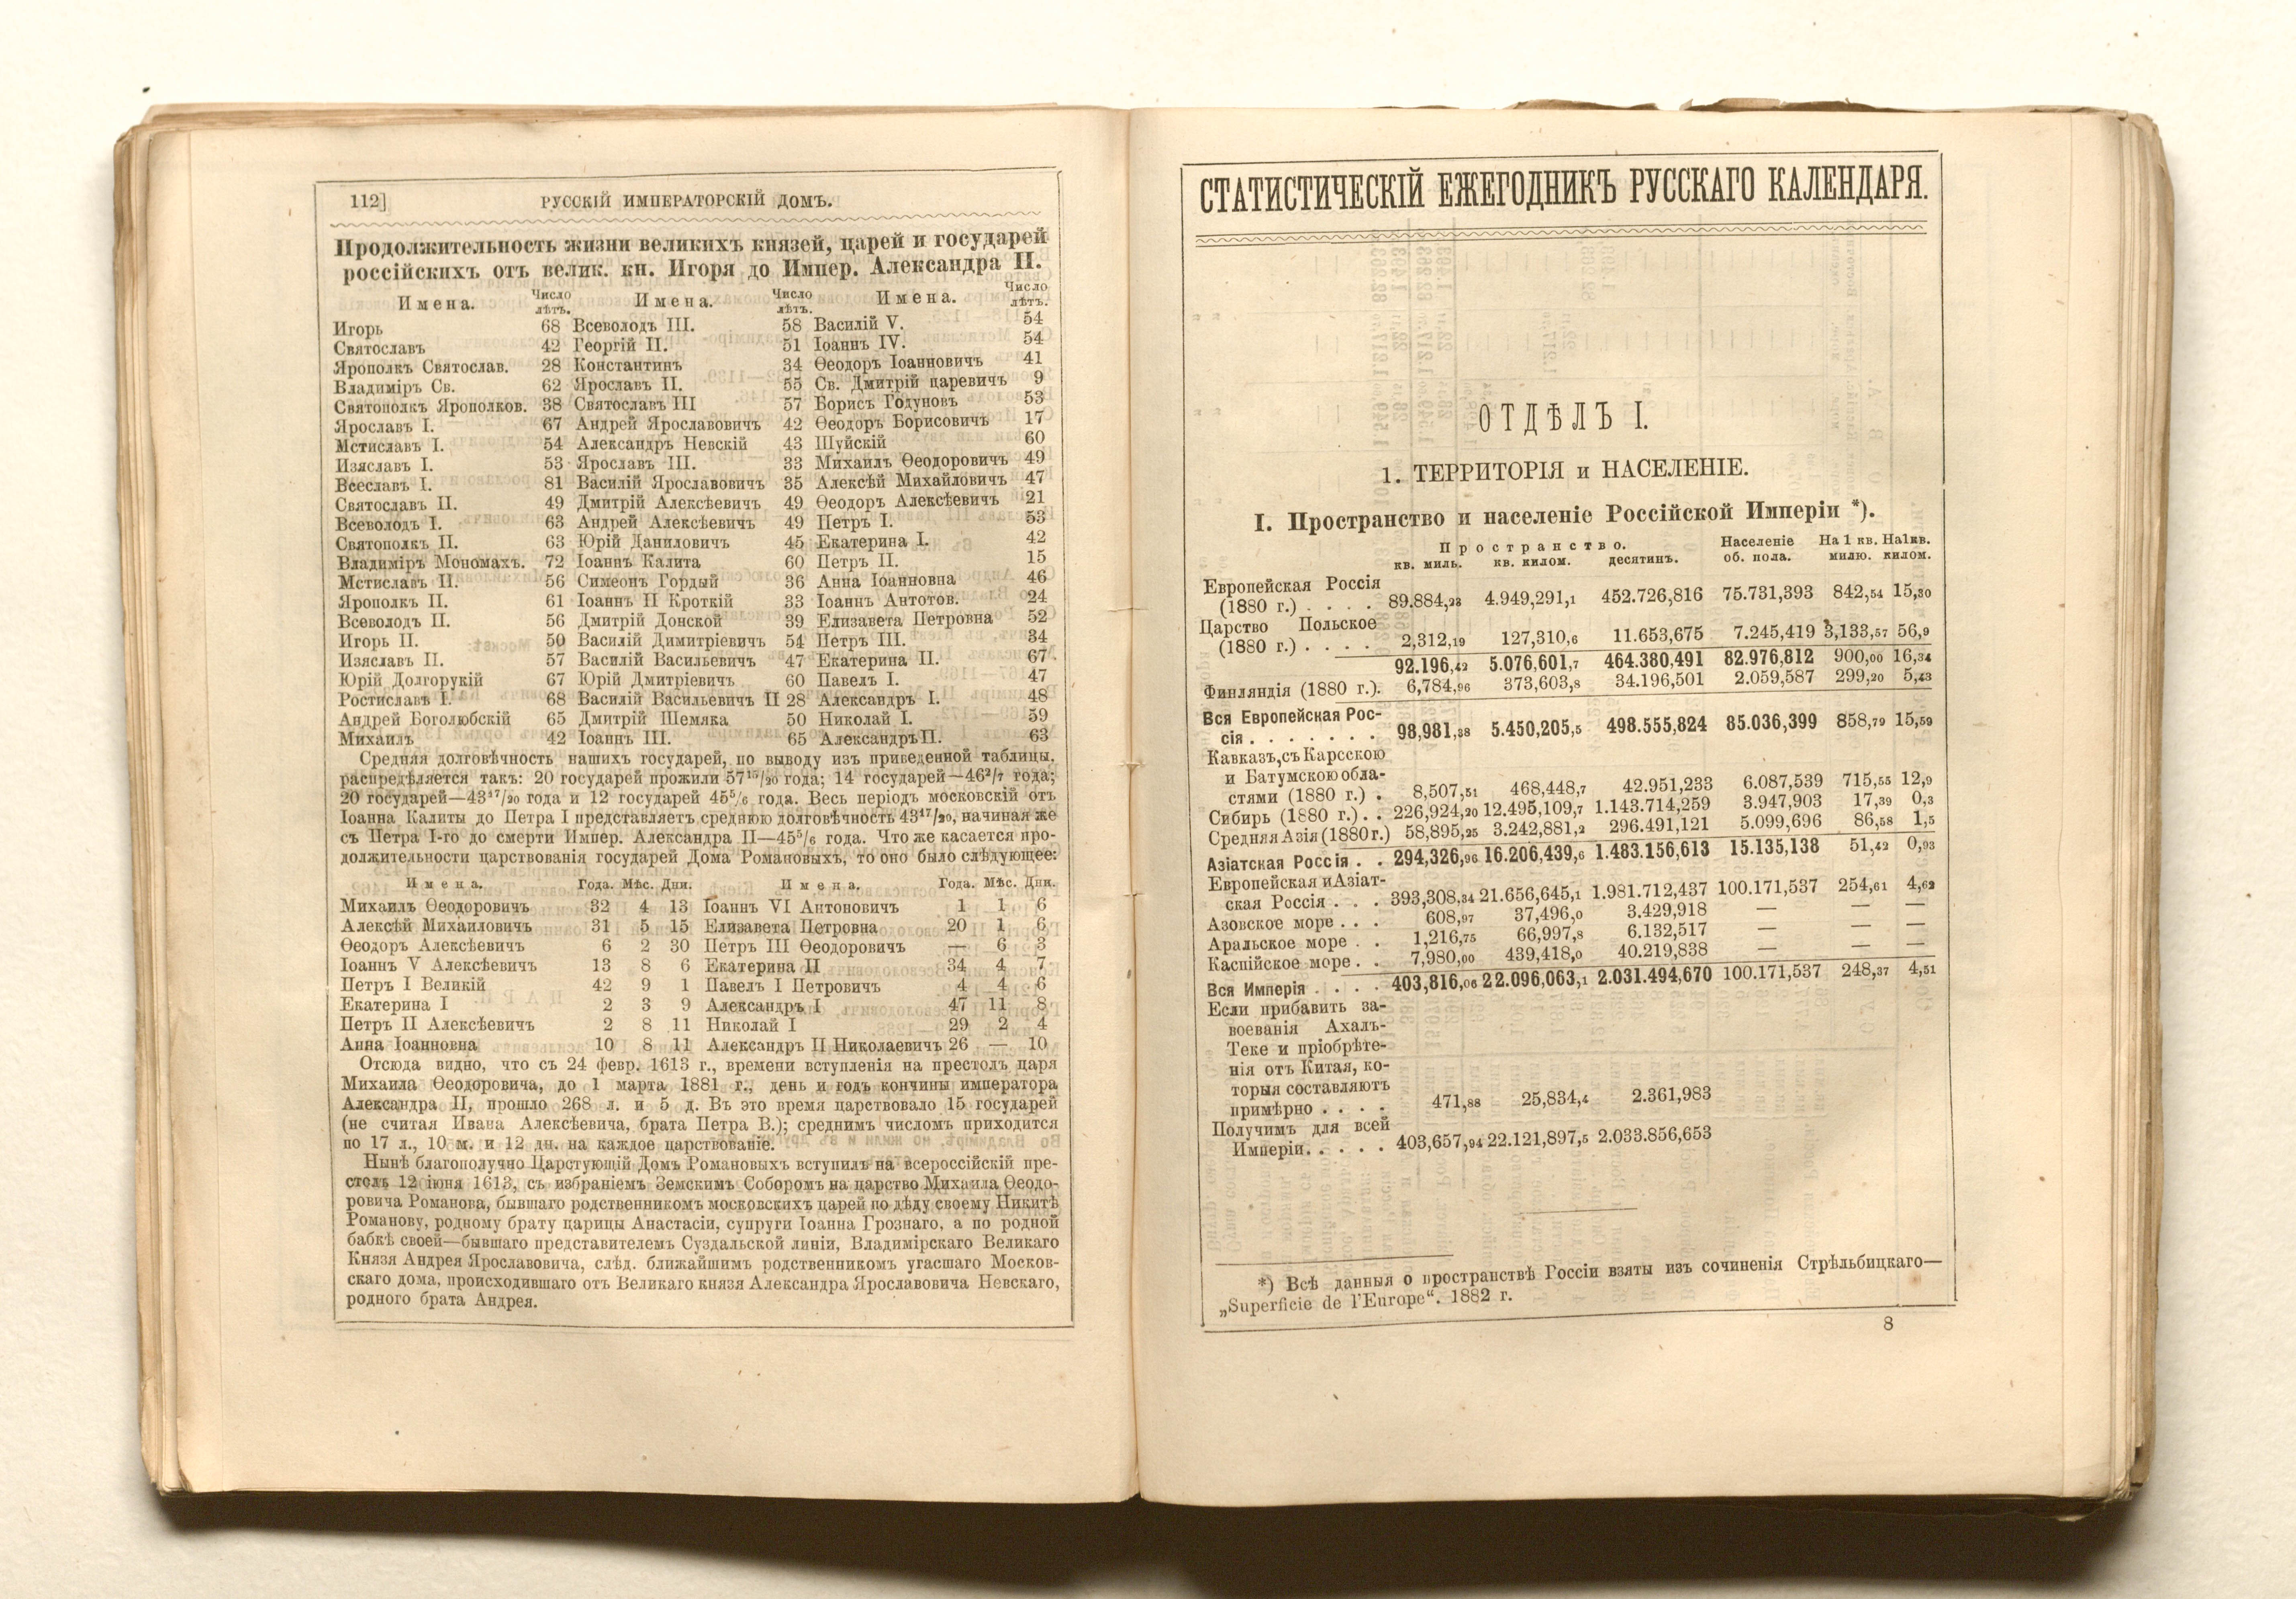 112]
РУССКІЙ ИМПЕРАТОРСКІЙ ДОМЪ.
Продолжительность жизни великихъ князей, царей и государей
россійскихъ отъ велик. кн. Игоря до Импер. Александра II.
Имена. Число лѣтъ. Имена. Число лѣтъ. Имена. Число лѣтъ.
Игорь 68 Всеволодъ III. 58 Василій V. 54
Святославъ 42 Георгій II. 51 Іоаннъ IV. 54
Ярополкъ Святослав. 28 Константинъ 34 Ѳеодоръ Іоанновичъ 41
Владиміръ Св. 62 Ярославъ II. 55 Св. Дмитрій царевичъ 9
Святополкъ Ярополков. 38 Святославъ III 57 Борисъ Годуновъ 53
Ярославъ I. 67 Андрей Ярославовичъ 42 Ѳеодоръ Борисовичъ 17
Мстиславъ I. 54 Александръ Невскій 43 Шуйскій 60
Изяславъ I. 53 Ярославъ III. 33 Михаилъ Ѳеодоровичъ 49
Всеславъ I. 81 Василій Ярославовичъ 35 Алексѣй Михайловичъ 47
Святославъ II. 49 Дмитрій Алексѣевичъ 49 Ѳеодоръ Алексѣевичъ 21
Всеволодъ I. 63 Андрей Алексѣевичъ 49 Петръ I. 53
Святополкъ II. 63 Юрій Даниловичъ 45 Екатерина I. 42
Владиміръ Мономахъ. 72 Іоаннъ Калита 60 Петръ II. 15
Мстиславъ II. 56 Симеонъ Гордый 36 Анна Іоанновна 46
Ярополкъ II. 61 Іоаннъ II Кроткій 33 Іоаннъ Антотов. 24
Всеволодъ II. 56 Дмитрій Донской 39 Елизавета Петровна 52
Игорь II. 50 Василій Димитріевичъ 54 Петръ III. 34
Изяславъ II. 57 Василій Васильевичъ 47 Екатерина II. 67
Юрій Долгорукій 67 Юрій Дмитріевичъ 60 Павелъ I. 47
Ростиславъ I. 68 Василій Васильевичъ II 28 Александръ I. 48
Андрей Боголюбскій 65 Дмитрій Шемяка 50 Николай I. 59
Михаилъ 42 Іоаннъ III. 65 Александръ II. 63
Средняя долговѣчность нашихъ государей, по выводу изъ приведенной таблицы,
распредѣляется такъ: 20 государей прожили 57¹⁵/₂₀ года; 14 государей—46²/₇ года;
20 государей—43¹⁷/₂₀ года и 12 государей 45⁵/₆ года. Весь періодъ московскій отъ
Іоанна Калиты до Петра I представляетъ среднюю долговѣчность 43¹⁷/₂₀, начиная же
съ Петра I-го до смерти Импер. Александра II—45⁵/₆ года. Что же касается про-
должительности царствованія государей Дома Романовыхъ, то оно было слѣдующее:
Имена. Года. Мѣс. Дни. Имена. Года. Мѣс. Дни.
Михаилъ Ѳеодоровичъ 32 4 13 Іоаннъ VI Антоновичъ 1 1 6
Алексѣй Михаиловичъ 31 5 15 Елизавета Петровна 20 1 6
Ѳеодоръ Алексѣевичъ 6 2 30 Петръ III Ѳеодоровичъ — 6 3
Іоаннъ V Алексѣевичъ 13 8 6 Екатерина II 34 4 7
Петръ I Великій 42 9 1 Павелъ I Петровичъ 4 4 6
Екатерина I 2 3 9 Александръ I 47 11 8
Петръ II Алексѣевичъ 2 8 11 Николай I 29 2 4
Анна Іоанновна 10 8 11 Александръ II Николаевичъ 26 — 10
Отсюда видно, что съ 24 февр. 1613 г., времени вступленія на престолъ царя
Михаила Ѳеодоровича, до 1 марта 1881 г., день и годъ кончины императора
Александра II, прошло 268 л. и 5 д. Въ это время царствовало 15 государей
(не считая Ивана Алексѣевича, брата Петра В.); среднимъ числомъ приходится
по 17 л., 10 м. и 12 дн. на каждое царствованіе.
Нынѣ благополучно Царстующій Домъ Романовыхъ вступилъ на всероссійскій пре-
столъ 12 іюня 1613, съ избраніемъ Земскимъ Соборомъ на царство Михаила Ѳеодо-
ровича Романова, бывшаго родственникомъ московскихъ царей по дѣду своему Никитѣ
Романову, родному брату царицы Анастасіи, супруги Іоанна Грознаго, а по родной
бабкѣ своей—бывшаго представителемъ Суздальской линіи, Владимірскаго Великаго
Князя Андрея Ярославовича, слѣд. ближайшимъ родственникомъ угасшаго Москов-
скаго дома, происходившаго отъ Великаго князя Александра Ярославовича Невскаго,
родного брата Андрея.
СТАТИСТИЧЕСКІЙ ЕЖЕГОДНИКЪ РУССКАГО КАЛЕНДАРЯ.
ОТДѢЛЪ I.
1. ТЕРРИТОРІЯ и НАСЕЛЕНІЕ.
I. Пространство и населеніе Россійской Имперіи *).
Пространство. Населеніе На 1 кв. На 1 кв.
кв. миль. кв. килом. десятинъ. об. пола. милю. килом.
Европейская Россія
(1880 г.) . . . . 89.884,28 4.949,291,1 452.726,816 75.731,393 842,54 15,30
Царство Польское
(1880 г.) . . . . 2,312,19 127,310,6 11.653,675 7.245,419 3,133,57 56,9
92.196,42 5.076,601,7 464.380,491 82.976,812 900,00 16,34
Финляндія (1880 г.). 6,784,96 373,603,8 34.196,501 2.059,587 299,20 5,43
Вся Европейская Рос-
сія . . . . . . . 98,981,38 5.450,205,5 498.555,824 85.036,399 858,79 15,59
Кавказъ, съ Карсскою
и Батумскою обла-
стями (1880 г.) . 8,507,51 468,448,7 42.951,233 6.087,539 715,55 12,9
Сибирь (1880 г.). . 226,924,20 12.495,109,7 1.143.714,259 3.947,903 17,39 0,3
Средняя Азія (1880 г.) 58,895,25 3.242,881,2 296.491,121 5.099,696 86,58 1,5
Азіатская Россія . . 294,326,96 16.206,439,6 1.483.156,613 15.135,138 51,42 0,93
Европейская и Азіат-
ская Россія . . . 393,308,34 21.656,645,1 1.981.712,437 100.171,537 254,61 4,62
Азовское море . . . 608,97 37,496,0 3.429,918 — — —
Аральское море . . 1,216,75 66,997,8 6.132,517 — — —
Каспійское море . . 7,980,00 439,418,0 40.219,838 — — —
Вся Имперія . . . . 403,816,06 22.096,063,1 2.031.494,670 100.171,537 248,37 4,51
Если прибавить за-
воеванія Ахалъ-
Теке и пріобрѣте-
нія отъ Китая, ко-
торыя составляютъ
примѣрно . . . . 471,88 25,834,4 2.361,983
Получимъ для всей
Имперіи. . . . . 403,657,94 22.121,897,5 2.033.856,653
*) Всѣ данныя о пространствѣ Госсіи взяты изъ сочиненія Стрѣльбицкаго—
„Superficie de l'Europe“. 1882 г.
8